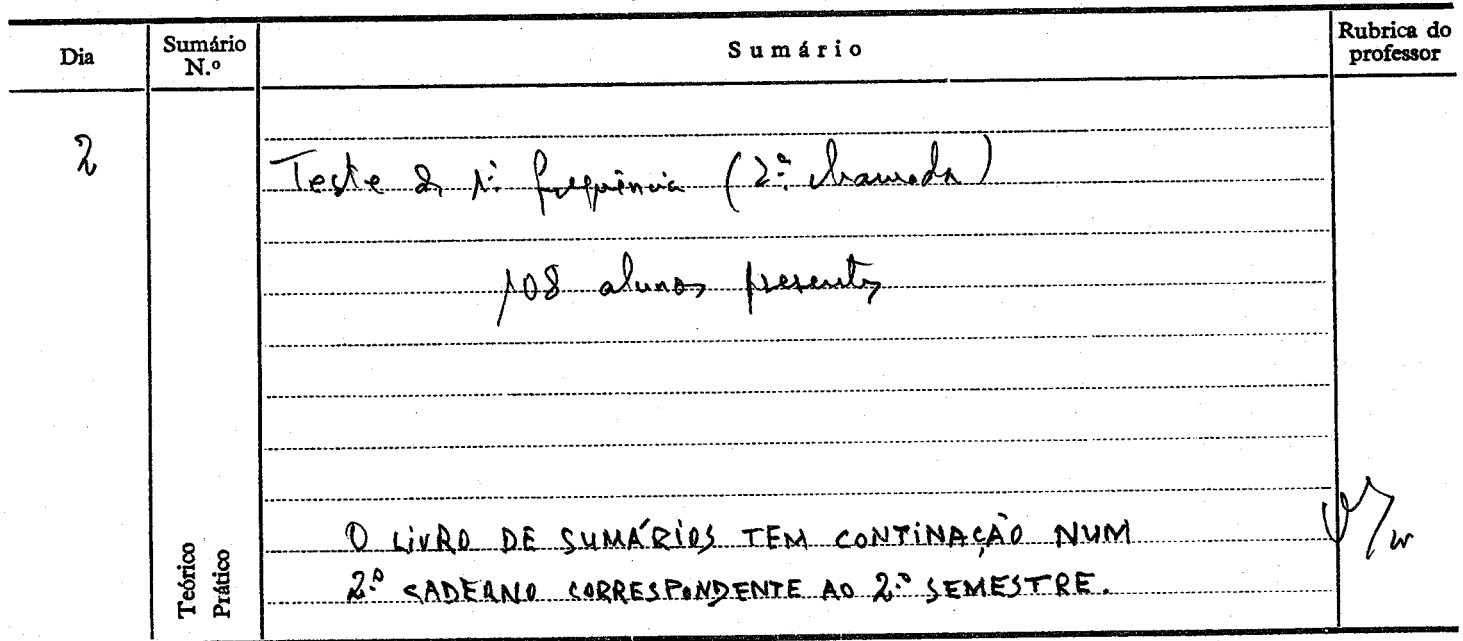 Dia
Sumário N.º
Sumário
Rubrica do professor
2
Teste da 1ª frequência (2ª chamada)
108 alunos presentes
O LIVRO DE SUMÁRIOS TEM CONTINAÇÃO NUM
2.º CADERNO CORRESPONDENTE AO 2.º SEMESTRE.
Teórico
Prático